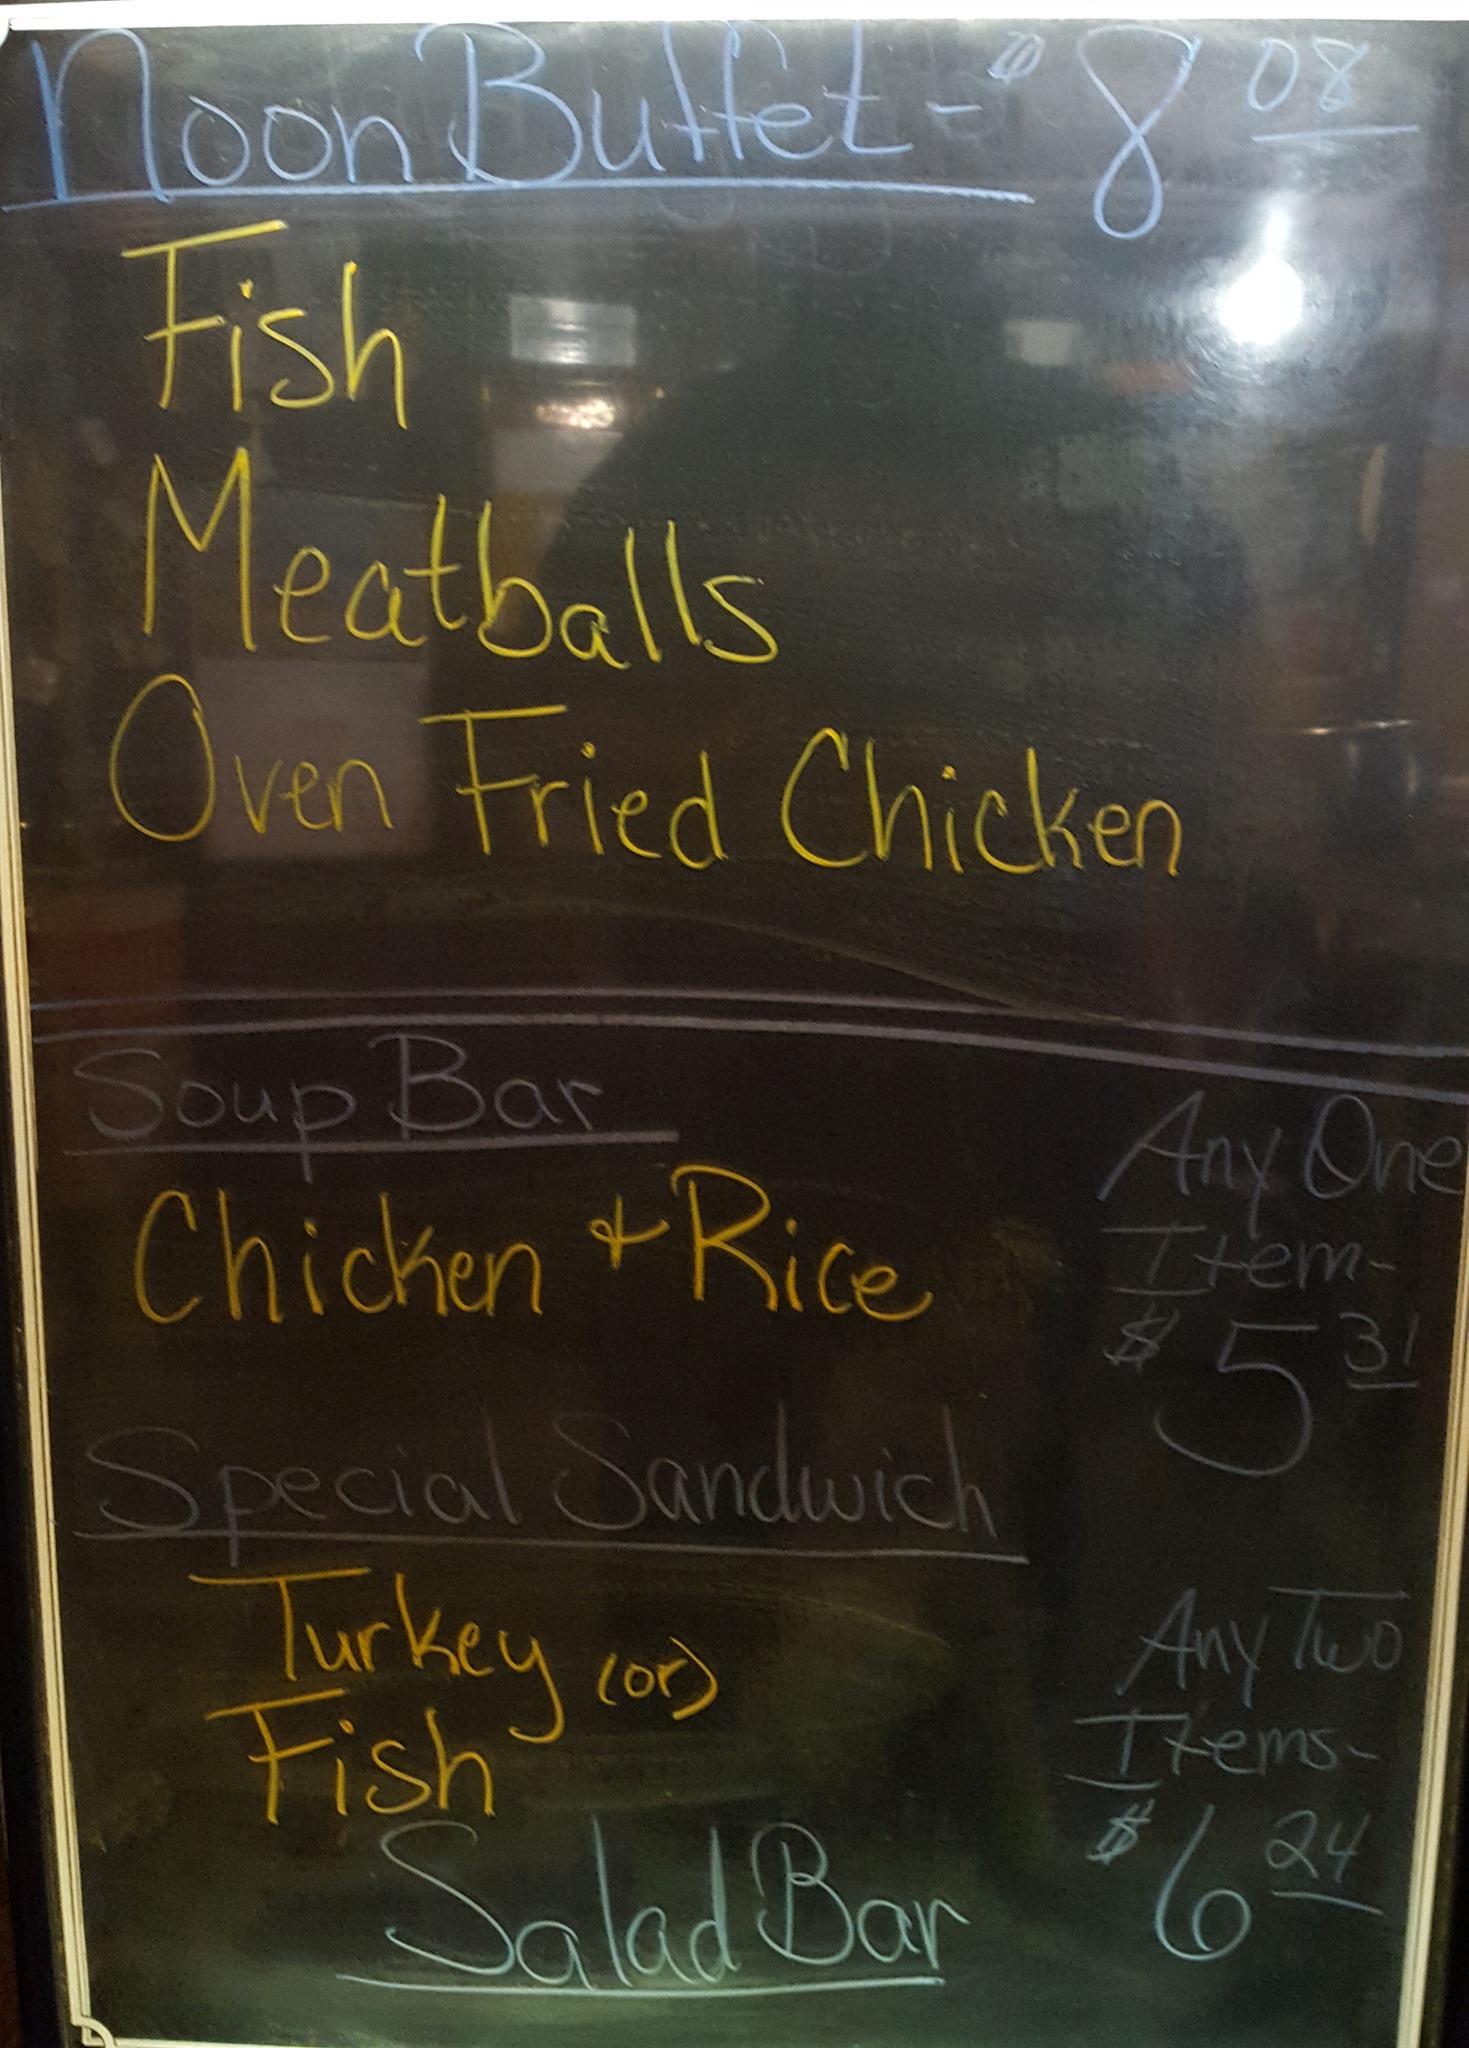 Noon Buffet - $8 08
Fish
Meatballs
Oven Fried Chicken
Soup Bar
Chicken + Rice
Any One
Item-
$5 31
Special Sandwich
Turkey (or)
Fish
Any Two
Items-
$6 24
Salad Bar